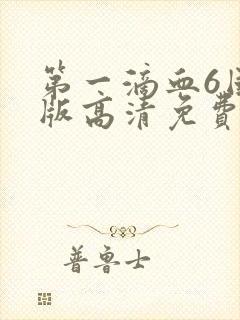 第一滴血6国
版高清免费
普鲁士